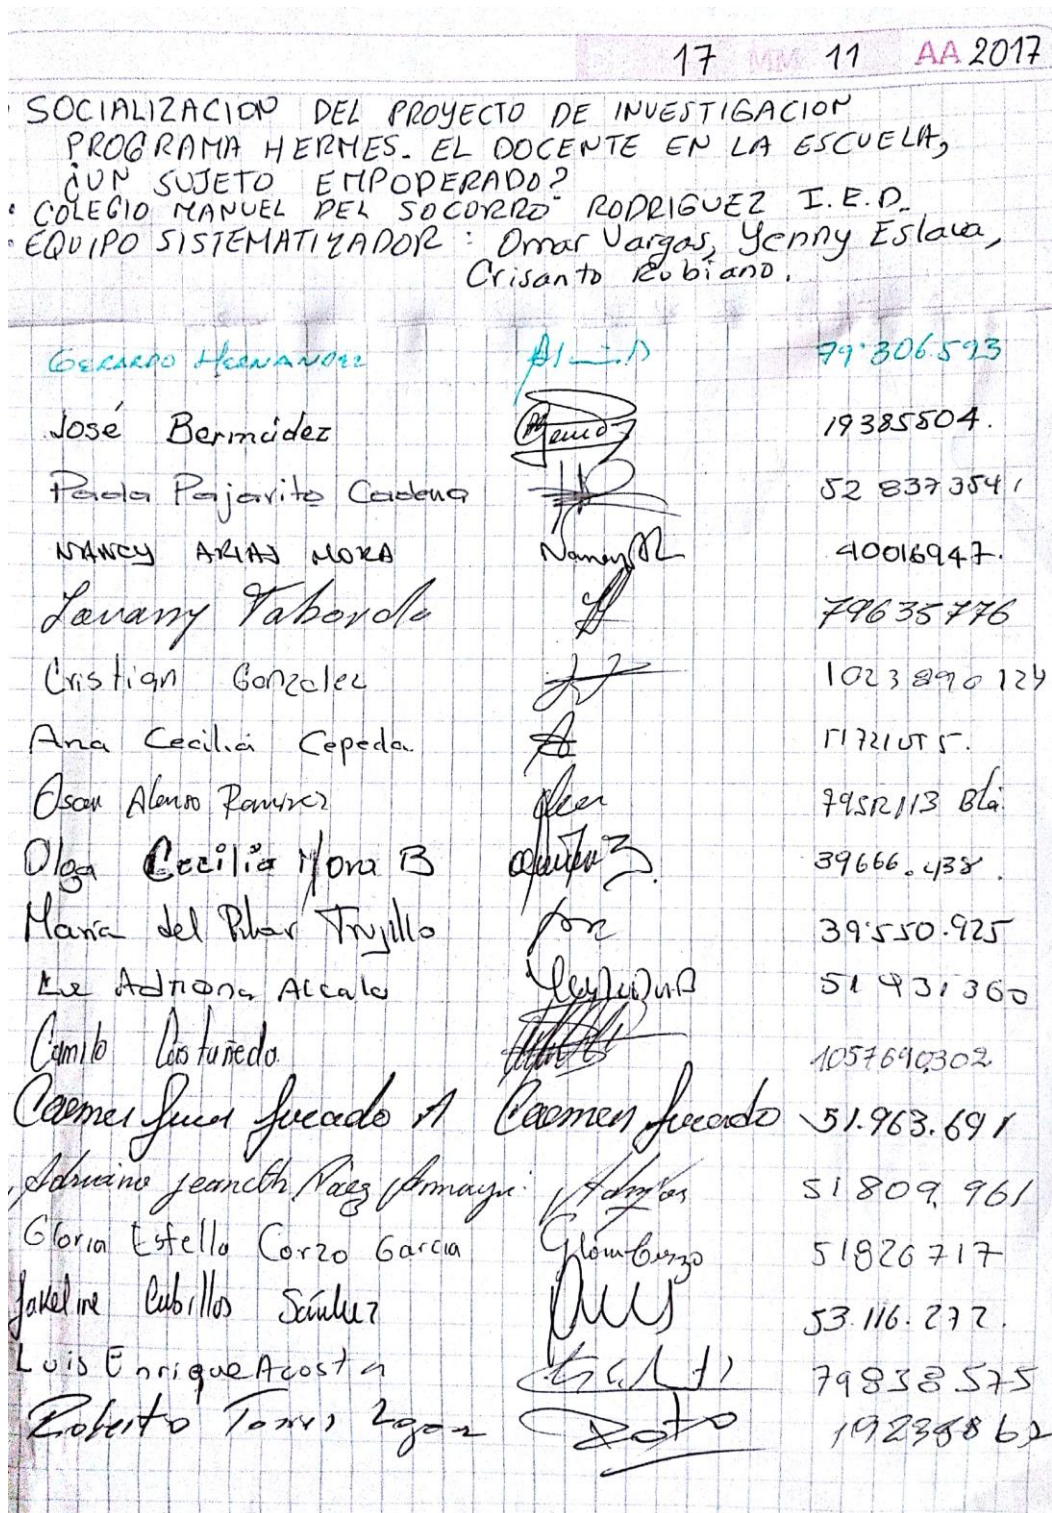 17 MM 11 AA 2017
· SOCIALIZACION DEL PROYECTO DE INVESTIGACION
PROGRAMA HERMES. EL DOCENTE EN LA ESCUELA,
¿UN SUJETO EMPODERADO?
· COLEGIO MANUEL DEL SOCORRO RODRIGUEZ I.E.D.
· EQUIPO SISTEMATIZADOR : Omar Vargas, Yenny Eslava,
Crisanto Rubiano.
GERARDO HERNANDEZ 79'306.593
José Bermúdez 19385504.
Paola Pajarito Cadena 52 837354
NANCY ARIAS MORA Nancy 40016947.
Taborda 79635776
Cristian Gonzalez 1023890124
Ana Cecilia Cepeda
Oscar Alonso Ramirez
Olga Cecilia Mora B 39666.438.
Maria del Pilar Trujillo 39'550.925
Adriana Alcala 51 931360
Camilo Castañeda 1057690302
Carmen Jurado A Carmen Jurado 51.963.691
Adriana Jeaneth Páez Amaya 51809.961
Gloria Estella Corzo Garcia 51826717
Jakeline Cubillos Sánchez 53.116.272.
Luis Enrique Acosta 79838575
Roberto Torres